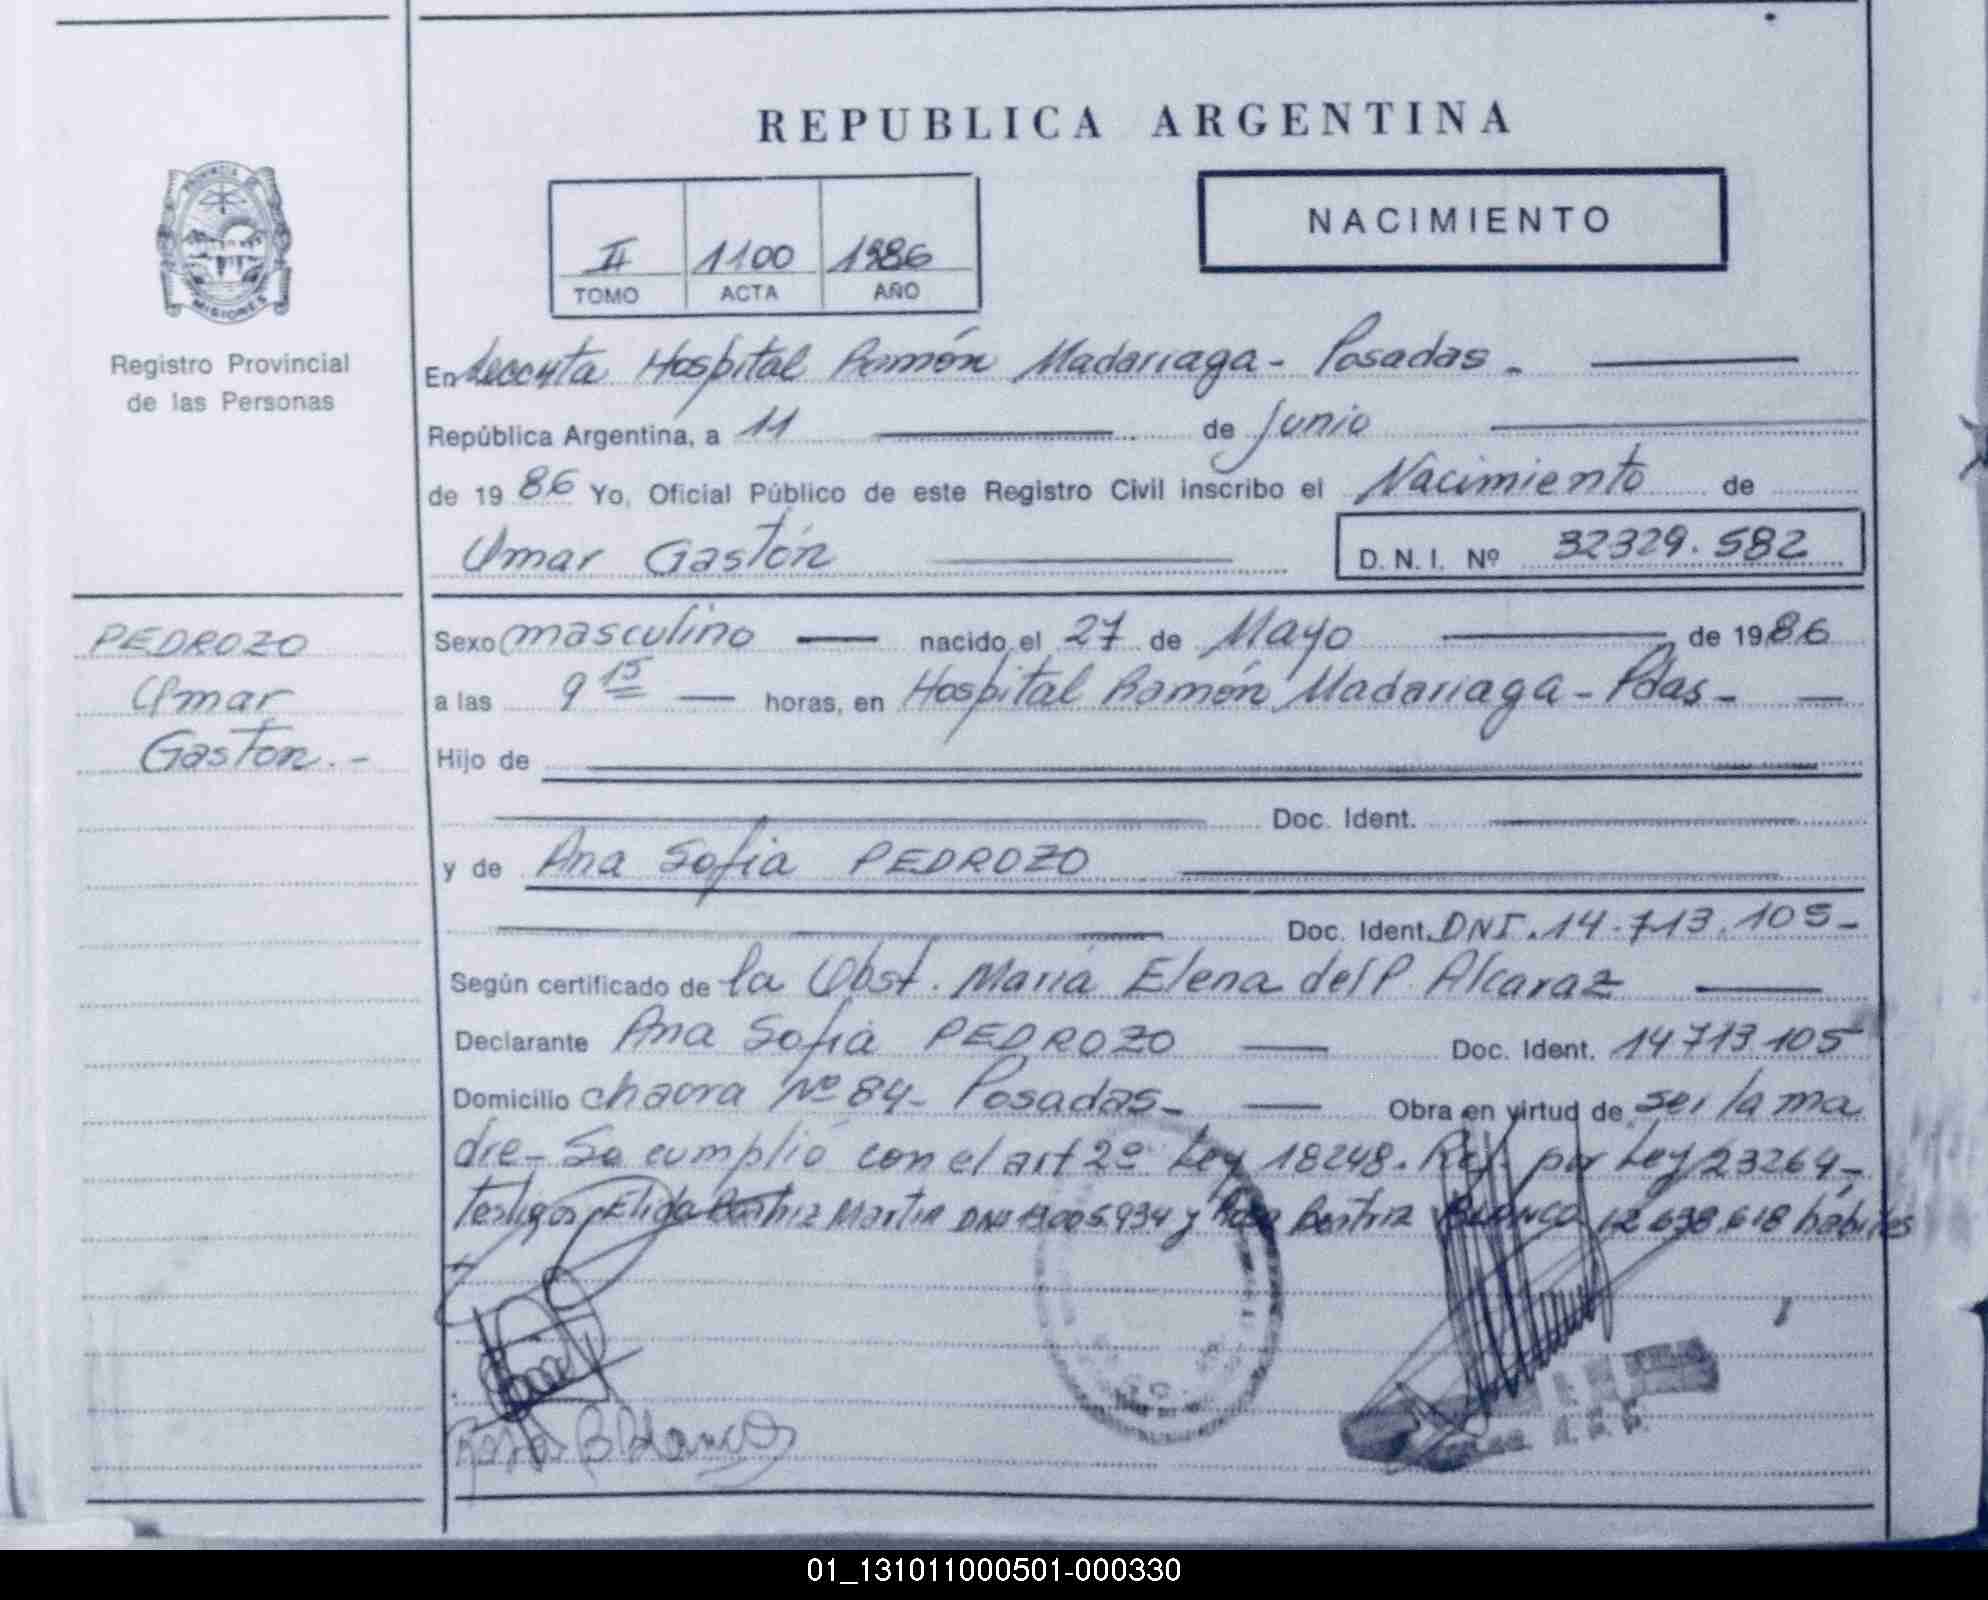 REPUBLICA ARGENTINA
NACIMIENTO
II 1100 1986
TOMO ACTA AÑO
PROVINCIA DE
MISIONES
Registro Provincial
de las Personas
En Hospital Ramón Madariaga - Posadas.
República Argentina, a 11 de Junio
de 19 86 Yo, Oficial Público de este Registro Civil inscribo el Nacimiento de
Omar Gastón
D. N. I. Nº 32329.582
PEDROZO
Omar
Gaston.-
Sexo masculino nacido el 27 de Mayo de 19 86
a las 9 15 horas, en Hospital Ramón Madariaga - Pdas -
Hijo de
Doc. Ident.
y de Ana Sofia PEDROZO
Doc. Ident. DNI. 14.713.105-
Según certificado de la Obst. María Elena del P. Alcaraz
Declarante Ana Sofia PEDROZO Doc. Ident. 14713105
Domicilio chacra Nº 84- Posadas- Obra en virtud de ser la ma
dre- Se cumplió con el art 2º Ley 18248. Ref. por Ley 23264-
Testigos Elida Beatriz Martin DNI y Rosa Beatriz BLANCO 12.638.618 hábiles
Rosa B Blanco
01_131011000501-000330